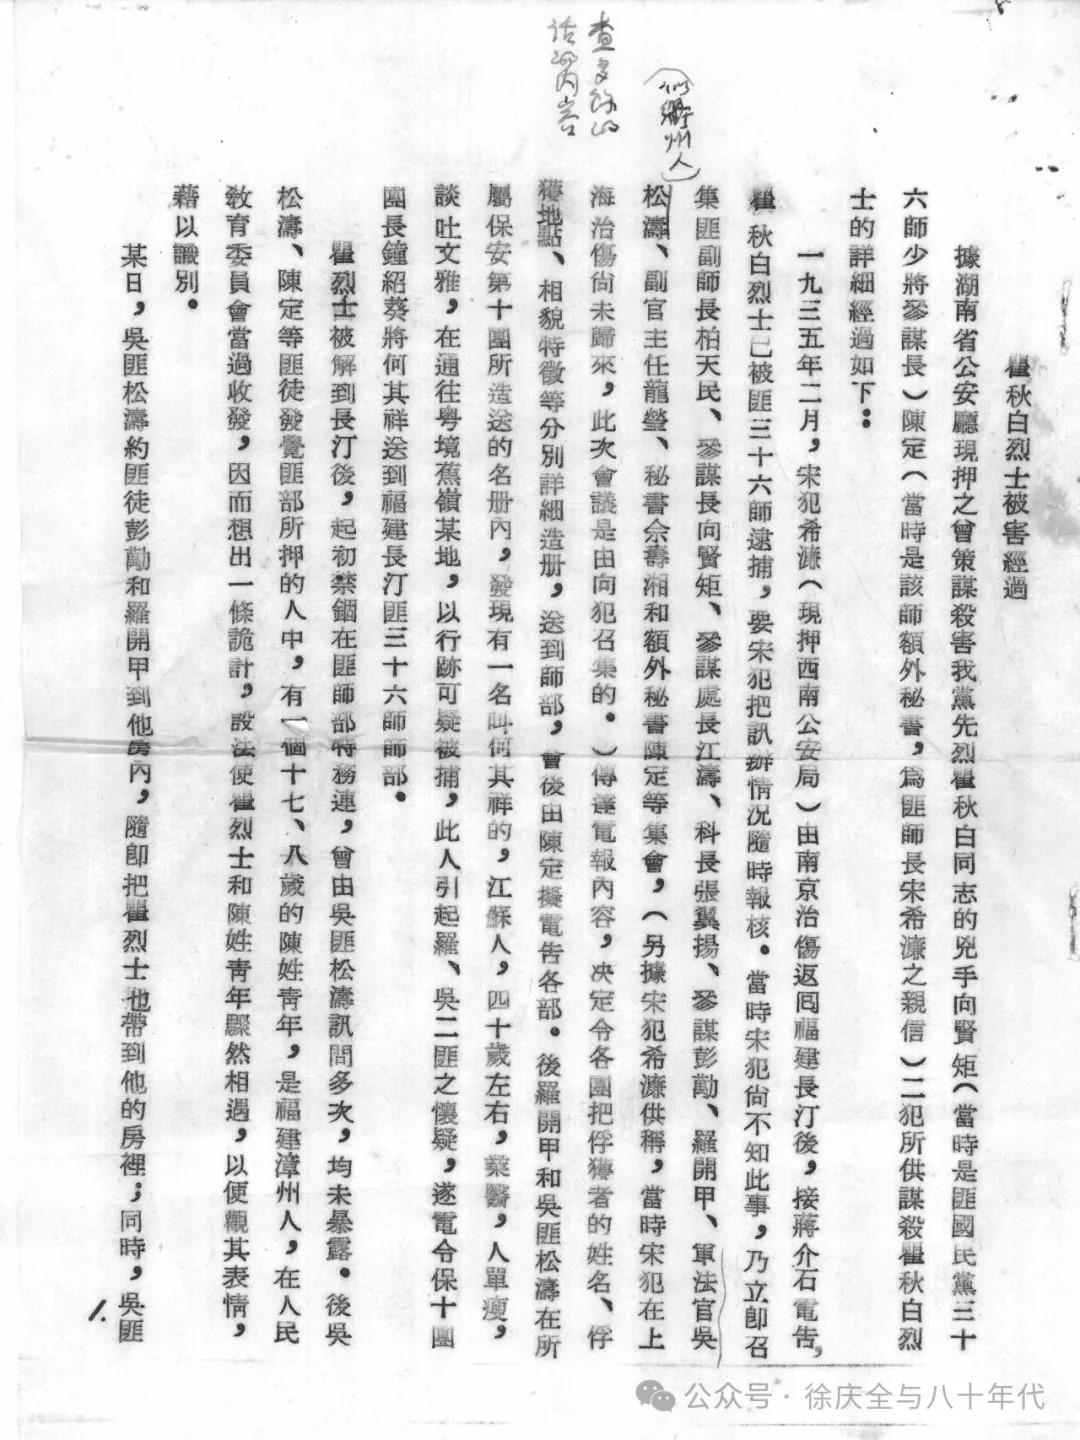 瞿秋白烈士被害經過
據湖南省公安廳現押之曾策謀殺害我黨先烈瞿秋白同志的兇手向賢矩（當時是匪國民黨三十
六師少將參謀長）陳定（當時是該師額外秘書，爲匪師長宋希濂之親信）二犯所供謀殺瞿秋白烈
士的詳細經過如下：
一九三五年二月，宋犯希濂（現押西南公安局）由南京治傷返囘福建長汀後，接蔣介石電告，
瞿秋白烈士已被匪三十六師逮捕，要宋犯把訊辦情况隨時報核。當時宋犯尙不知此事，乃立卽召
集匪副師長柏天民、參謀長向賢矩、參謀處長江濤、科長張翼揚、參謀彭勱、羅開甲、軍法官吳
松濤、副官主任龍瑩、秘書佘壽湘和額外秘書陳定等集會，（另據宋犯希濂供稱，當時宋犯在上
海治傷尙未歸來，此次會議是由向犯召集的。）傳達電報內容，决定令各團把俘獲者的姓名、俘
獲地點、相貌特徵等分別詳細造册，送到師部，會後由陳定擬電告各部。後羅開甲和吳匪松濤在所
屬保安第十團所造送的名册內，發現有一名叫何其祥的，江蘇人，四十歲左右，業醫，人單瘦，
談吐文雅，在通往粤境蕉嶺某地，以行跡可疑被捕，此人引起羅、吳二匪之懷疑，遂電令保十團
團長鐘紹葵將何其祥送到福建長汀匪三十六師師部。
瞿烈士被解到長汀後，起初禁錮在匪師部特務連，曾由吳匪松濤訊問多次，均未暴露。後吳
松濤、陳定等匪徒發覺匪部所押的人中，有一個十七、八歲的陳姓青年，是福建漳州人，在人民
敎育委員會當過收發，因而想出一條詭計，設法使瞿烈士和陳姓青年驟然相遇，以便觀其表情，
藉以識別。
某日，吳匪松濤約匪徒彭勱和羅開甲到他房內，隨卽把瞿烈士也帶到他的房裡；同時，吳匪
1.
公众号·徐庆全与八十年代